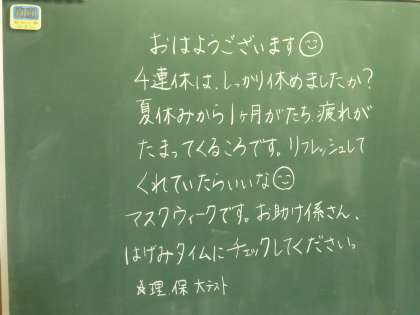 おはようございます☺
4連休は、しっかり休めましたか?
夏休みから1ヶ月がたち、疲れが
たまってくるころです。リフレッシュして
くれていたらいいな☺
マスクウィークです。お助け係さん、
はげみタイムにチェックしてください。
☆理、保 大テスト